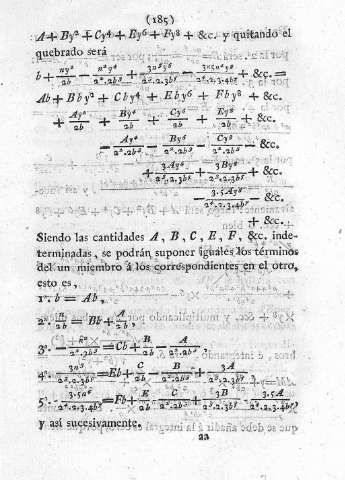 (185)
A + By² + Cy⁴ + Ey⁶ + Fy⁸ + &c. y quitando el
quebrado será
b + ny²/2b − n²y⁴/2².2b³ + 3n³y⁶/2³.2.3b⁵ − 3.5n⁴y⁸/2⁴.2.3.4b⁷ + &c. =
Ab + Bby² + Cby⁴ + Eby⁶ + Fby⁸ + &c.
+ Ay²/2b + By⁴/2b + Cy⁶/2b + Ey⁸/2b + &c.
− Ay⁴/2².2b³ − By⁶/2².2b³ − Cy⁸/2².2b³ − &c.
+ 3Ay⁶/2³.2.3b⁵ + 3By⁸/2³.2.3b⁵ + &c.
− 3.5Ay⁸/2⁴.2.3.4b⁷ − &c.
+ &c.
Siendo las cantidades A, B, C, E, F, &c. inde-
terminadas, se podrán suponer iguales los términos
del un miembro á los correspondientes en el otro,
esto es,
1º. b = Ab,
2º. n/2b = Bb + A/2b,
3º. − n²/2².2b³ = Cb + B/2b − A/2².2b³,
4º. 3n³/2³.2.3b⁵ = Eb + C/2b − B/2².2b³ + 3A/2³.2.3b⁵,
5º. − 3.5n⁴/2⁴.2.3.4b⁷ = Fb + E/2b − C/2².2b³ + 3B/2³.2.3b⁵ − 3.5A/2⁴.2.3.4b⁷,
y así sucesivamente.